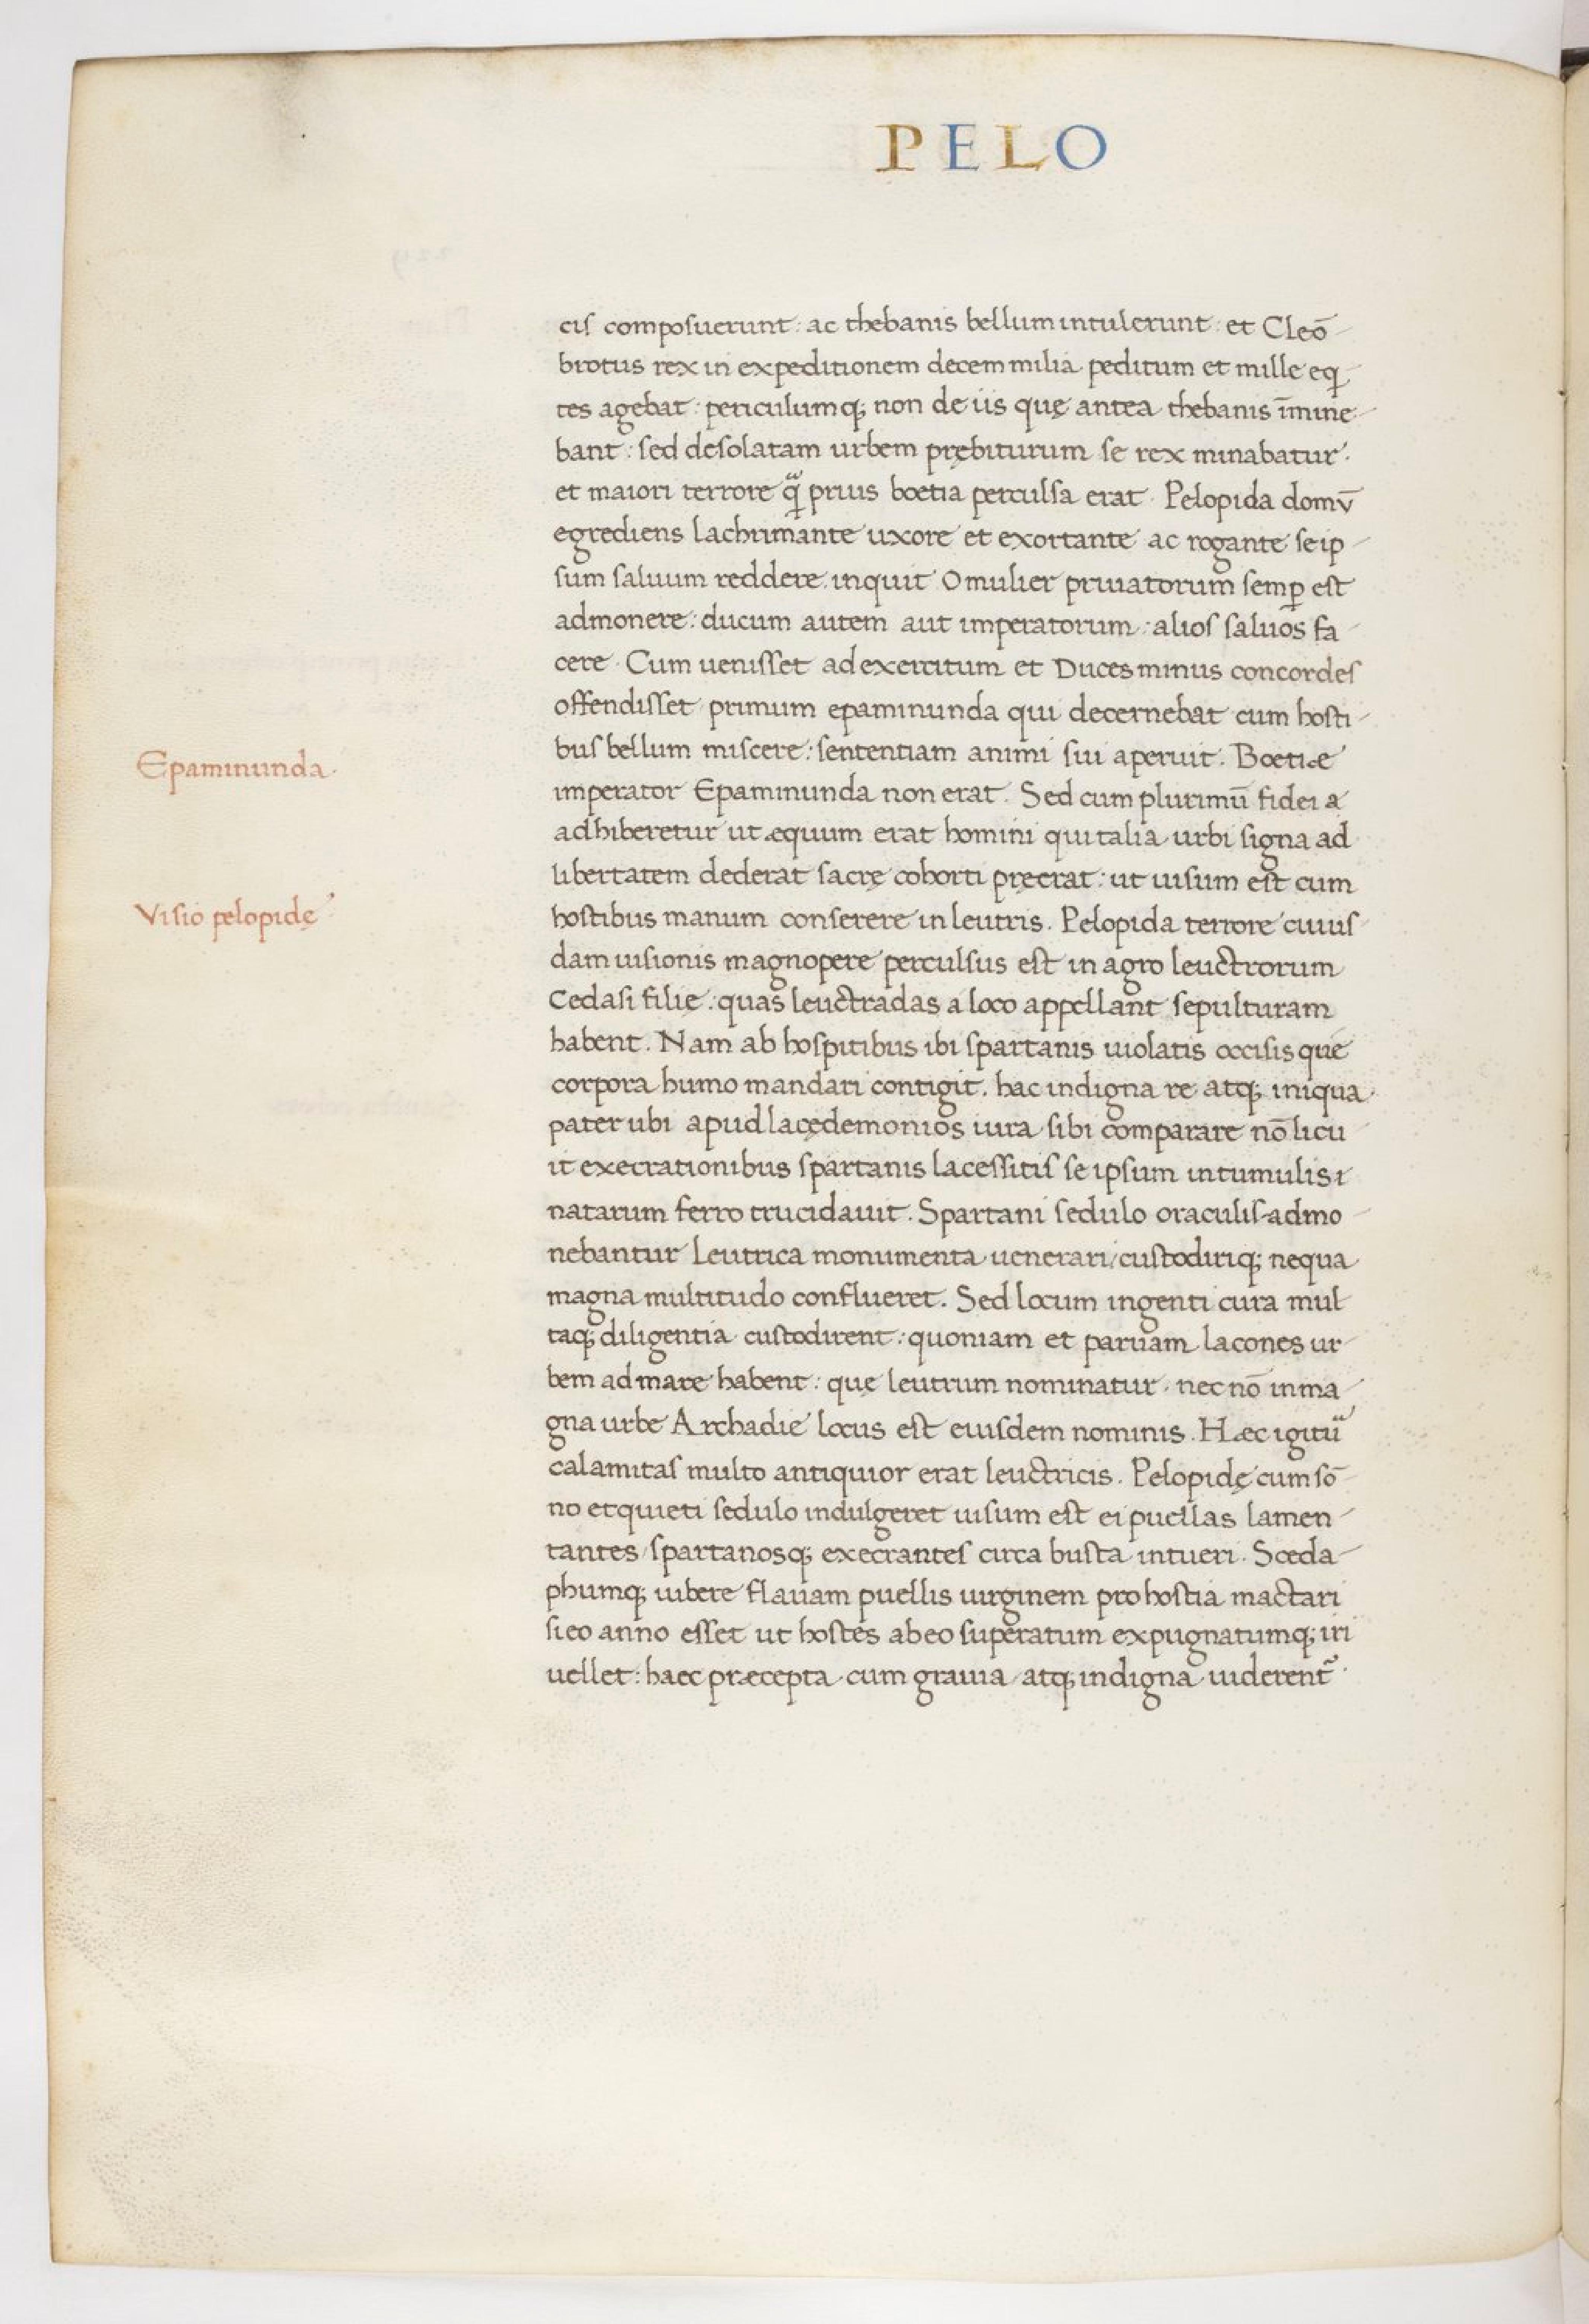 PELO
cis composuerunt: ac thebanis bellum intulerunt: et Cleō-
brotus rex in expeditionem decem milia peditum et mille eqͥ-
tes agebat: periculumq; non de iis quę antea thebanis īmine-
bant: sed desolatam urbem prębiturum se rex minabatur.
et maiori terrore qͣ prius boetia perculsa erat. Pelopida domū
egrediens lachrimante uxore et exortante ac rogante se ip-
sum saluum reddere. inquit O mulier priuatorum semꝑ est
admonere: ducum autem aut imperatorum: alios saluos fa-
cere. Cum uenisset ad exercitum et Duces minus concordes
offendisset primum epaminunda qui decernebat cum hosti-
bus bellum miscere: sententiam animi sui aperuit. Boetiæ
Epaminunda.
imperator Epaminunda non erat. Sed cum plurimū fidei a
adhiberetur ut æquum erat homini qui talia urbi signa ad
libertatem dederat sacrę cohorti pręerat: ut uisum est cum
Visio pelopidę
hostibus manum conserere in leutris. Pelopida terrore cuius-
dam uisionis magnopere perculsus est in agro leuctrorum
Cedasi filię: quas leuctradas a loco appellant sepulturam
habent. Nam ab hospitibus ibi spartanis uiolatis occisis que
corpora humo mandari contigit. hac indigna re atq; iniqua
pater ubi apud lacędemonios iura sibi comparare nō licu-
it execrationibus spartanis lacessitis se ipsum in tumulis
natarum ferro trucidauit. Spartani sedulo oraculis admo-
nebantur Leutrica monumenta uenerari/custodiriq; nequa
magna multitudo conflueret. Sed locum ingenti cura mul
taq; diligentia custodirent: quoniam et paruam lacones ur-
bem ad mare habent: quę leutrum nominatur. nec nō in ma-
gna urbe Archadie locus est eiusdem nominis. Hæc igituͬ
calamitas multo antiquior erat leuctricis. Pelopidę cum sō-
no et quieti sedulo indulgeret uisum est ei puellas lamen-
tantes/spartanosq; execrantes circa busta intueri. Sceda-
phumq; iubere flauam puellis uirginem pro hostia mactari
si eo anno esset ut hostes ab eo superatum expugnatumq; iri
uellet: haec præcepta cum grauia atq; indigna uiderent᷑.